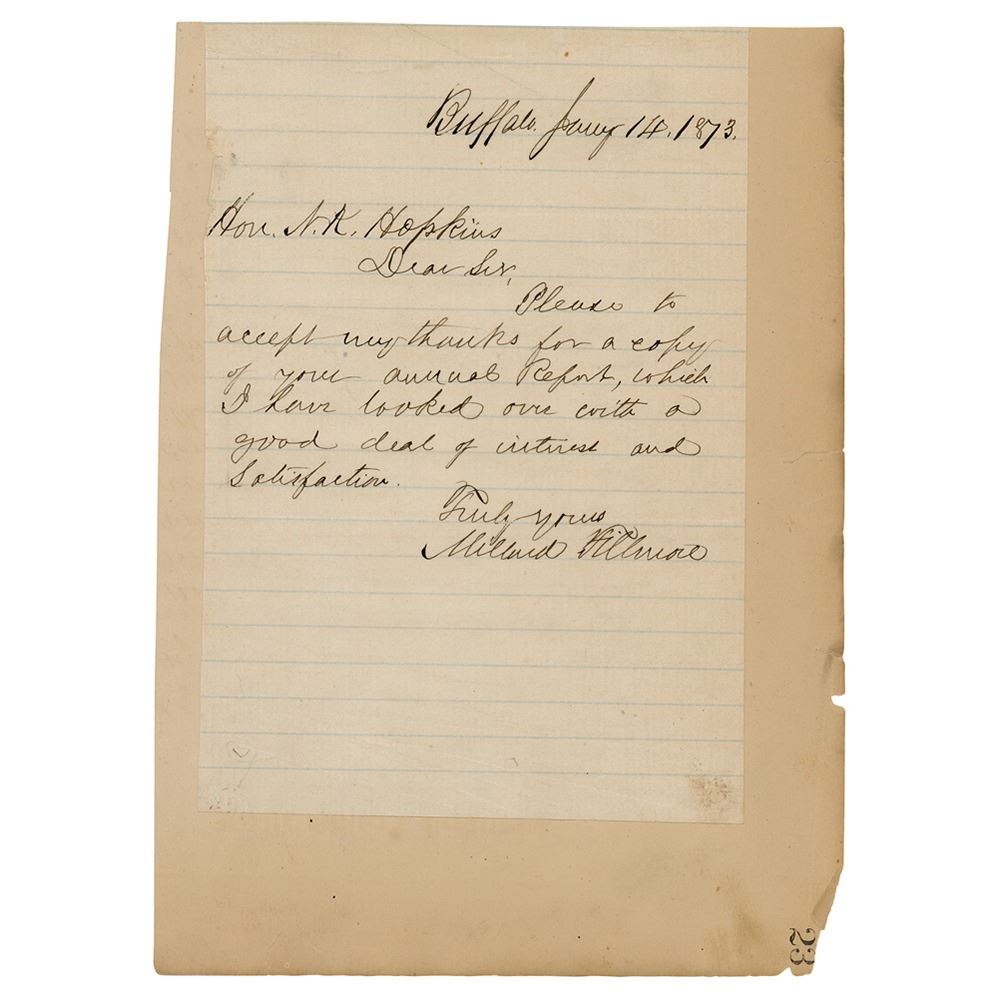 Buffalo. Jany 14. 1873.
Hon. N. K. Hopkins
Dear Sir,
Please to
accept my thanks for a copy
of your annual Report, which
I have looked over with a
good deal of interest and
Satisfaction.
Truly yours
Millard Fillmore
23